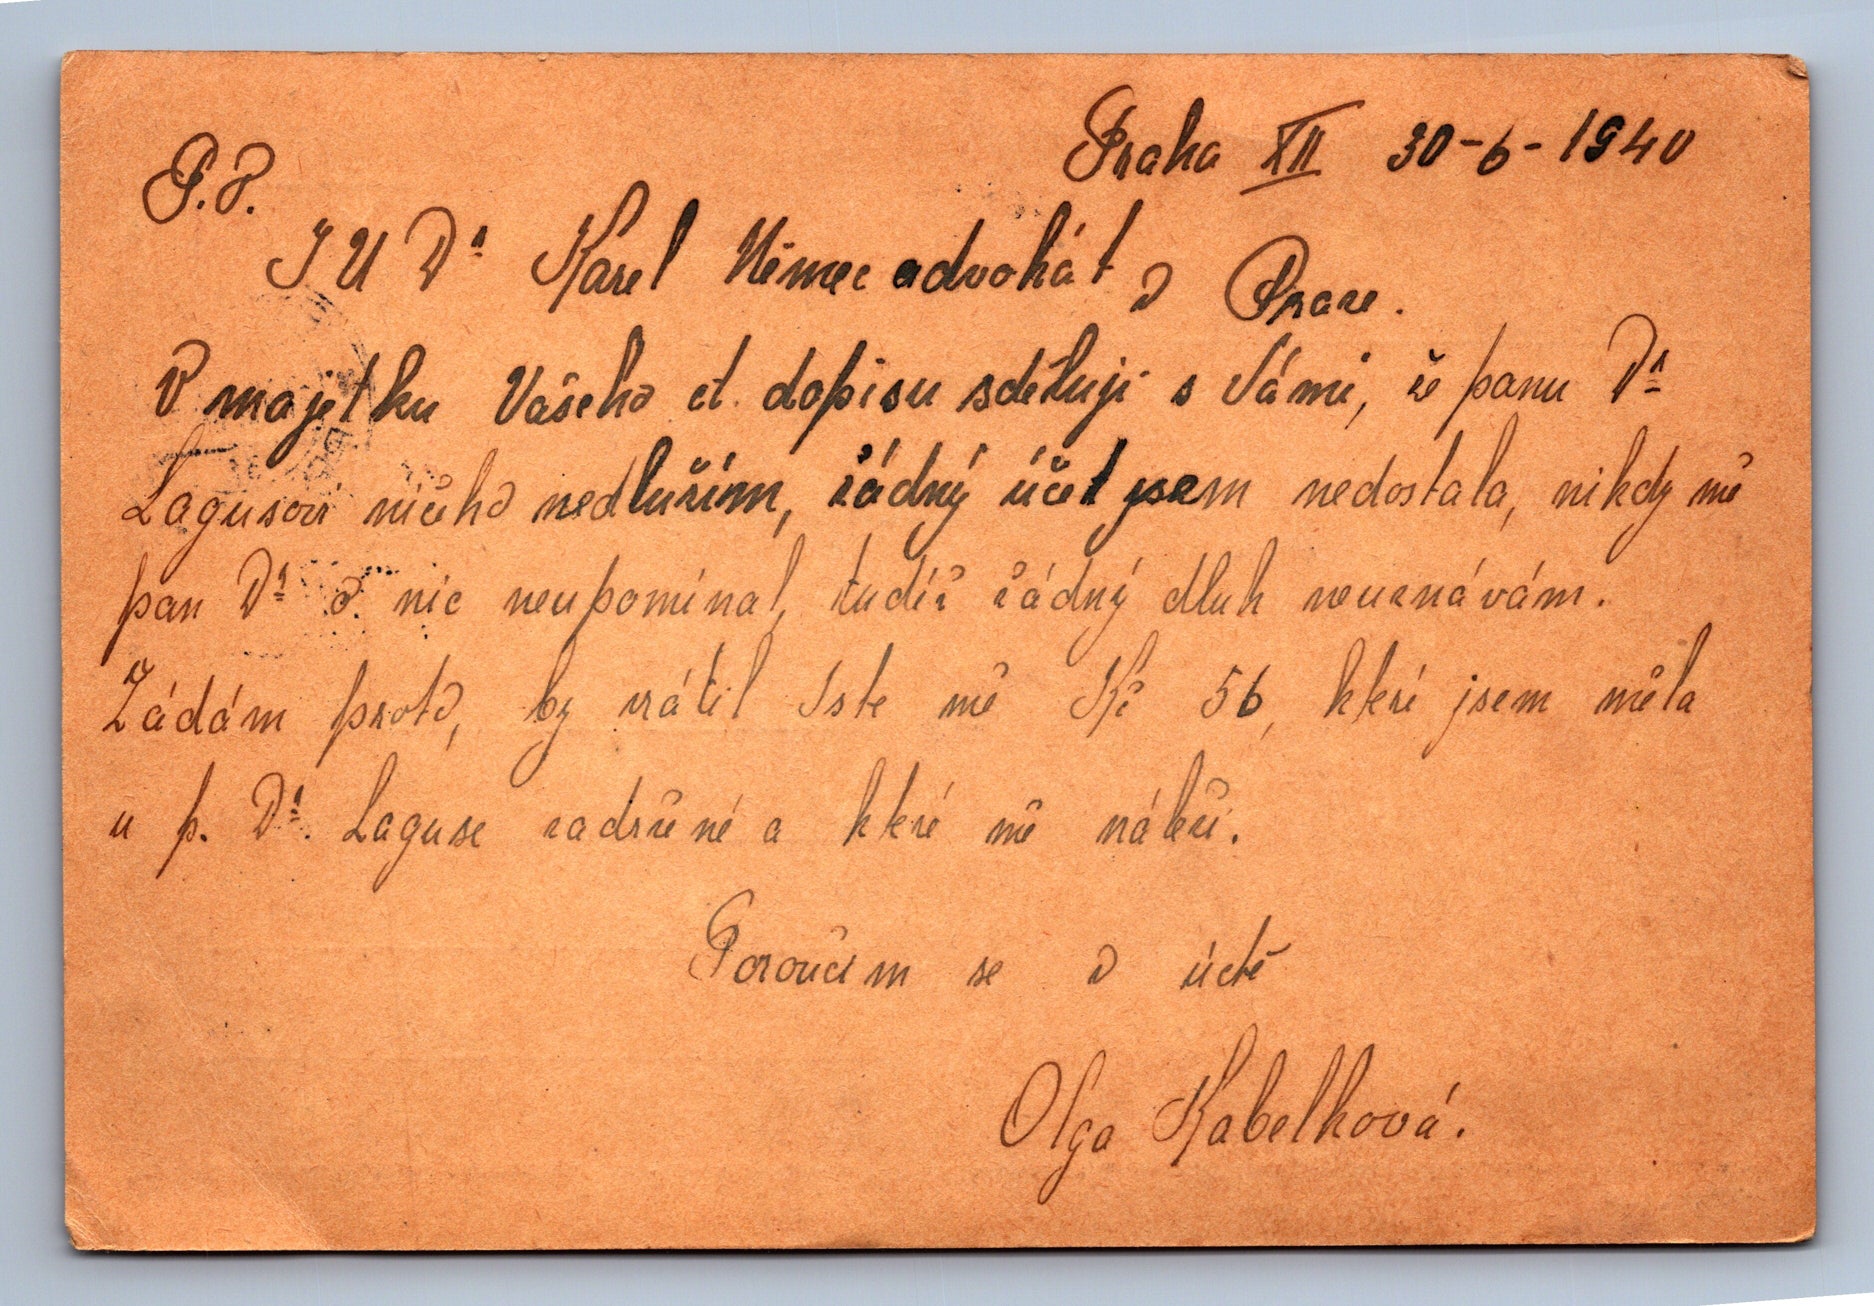 Praha XII 30-6-1940
P.T.
JUDr Karel Němec advokát v Praze.
V majetku Vašeho ct. dopisu sděluji s Vámi, že panu Dr
Lagusovi ničeho nedlužím, žádný účet jsem nedostala, nikdy mě
pan Dr o nic neupomínal, tudíž žádný dluh neuznávám.
Žádám proto, by vrátil Iste mě Kč 56, které jsem měla
u p. Dr. Laguse zadržené a které mě náleží.
Poroučím se v úctě
Olga Kabelková.